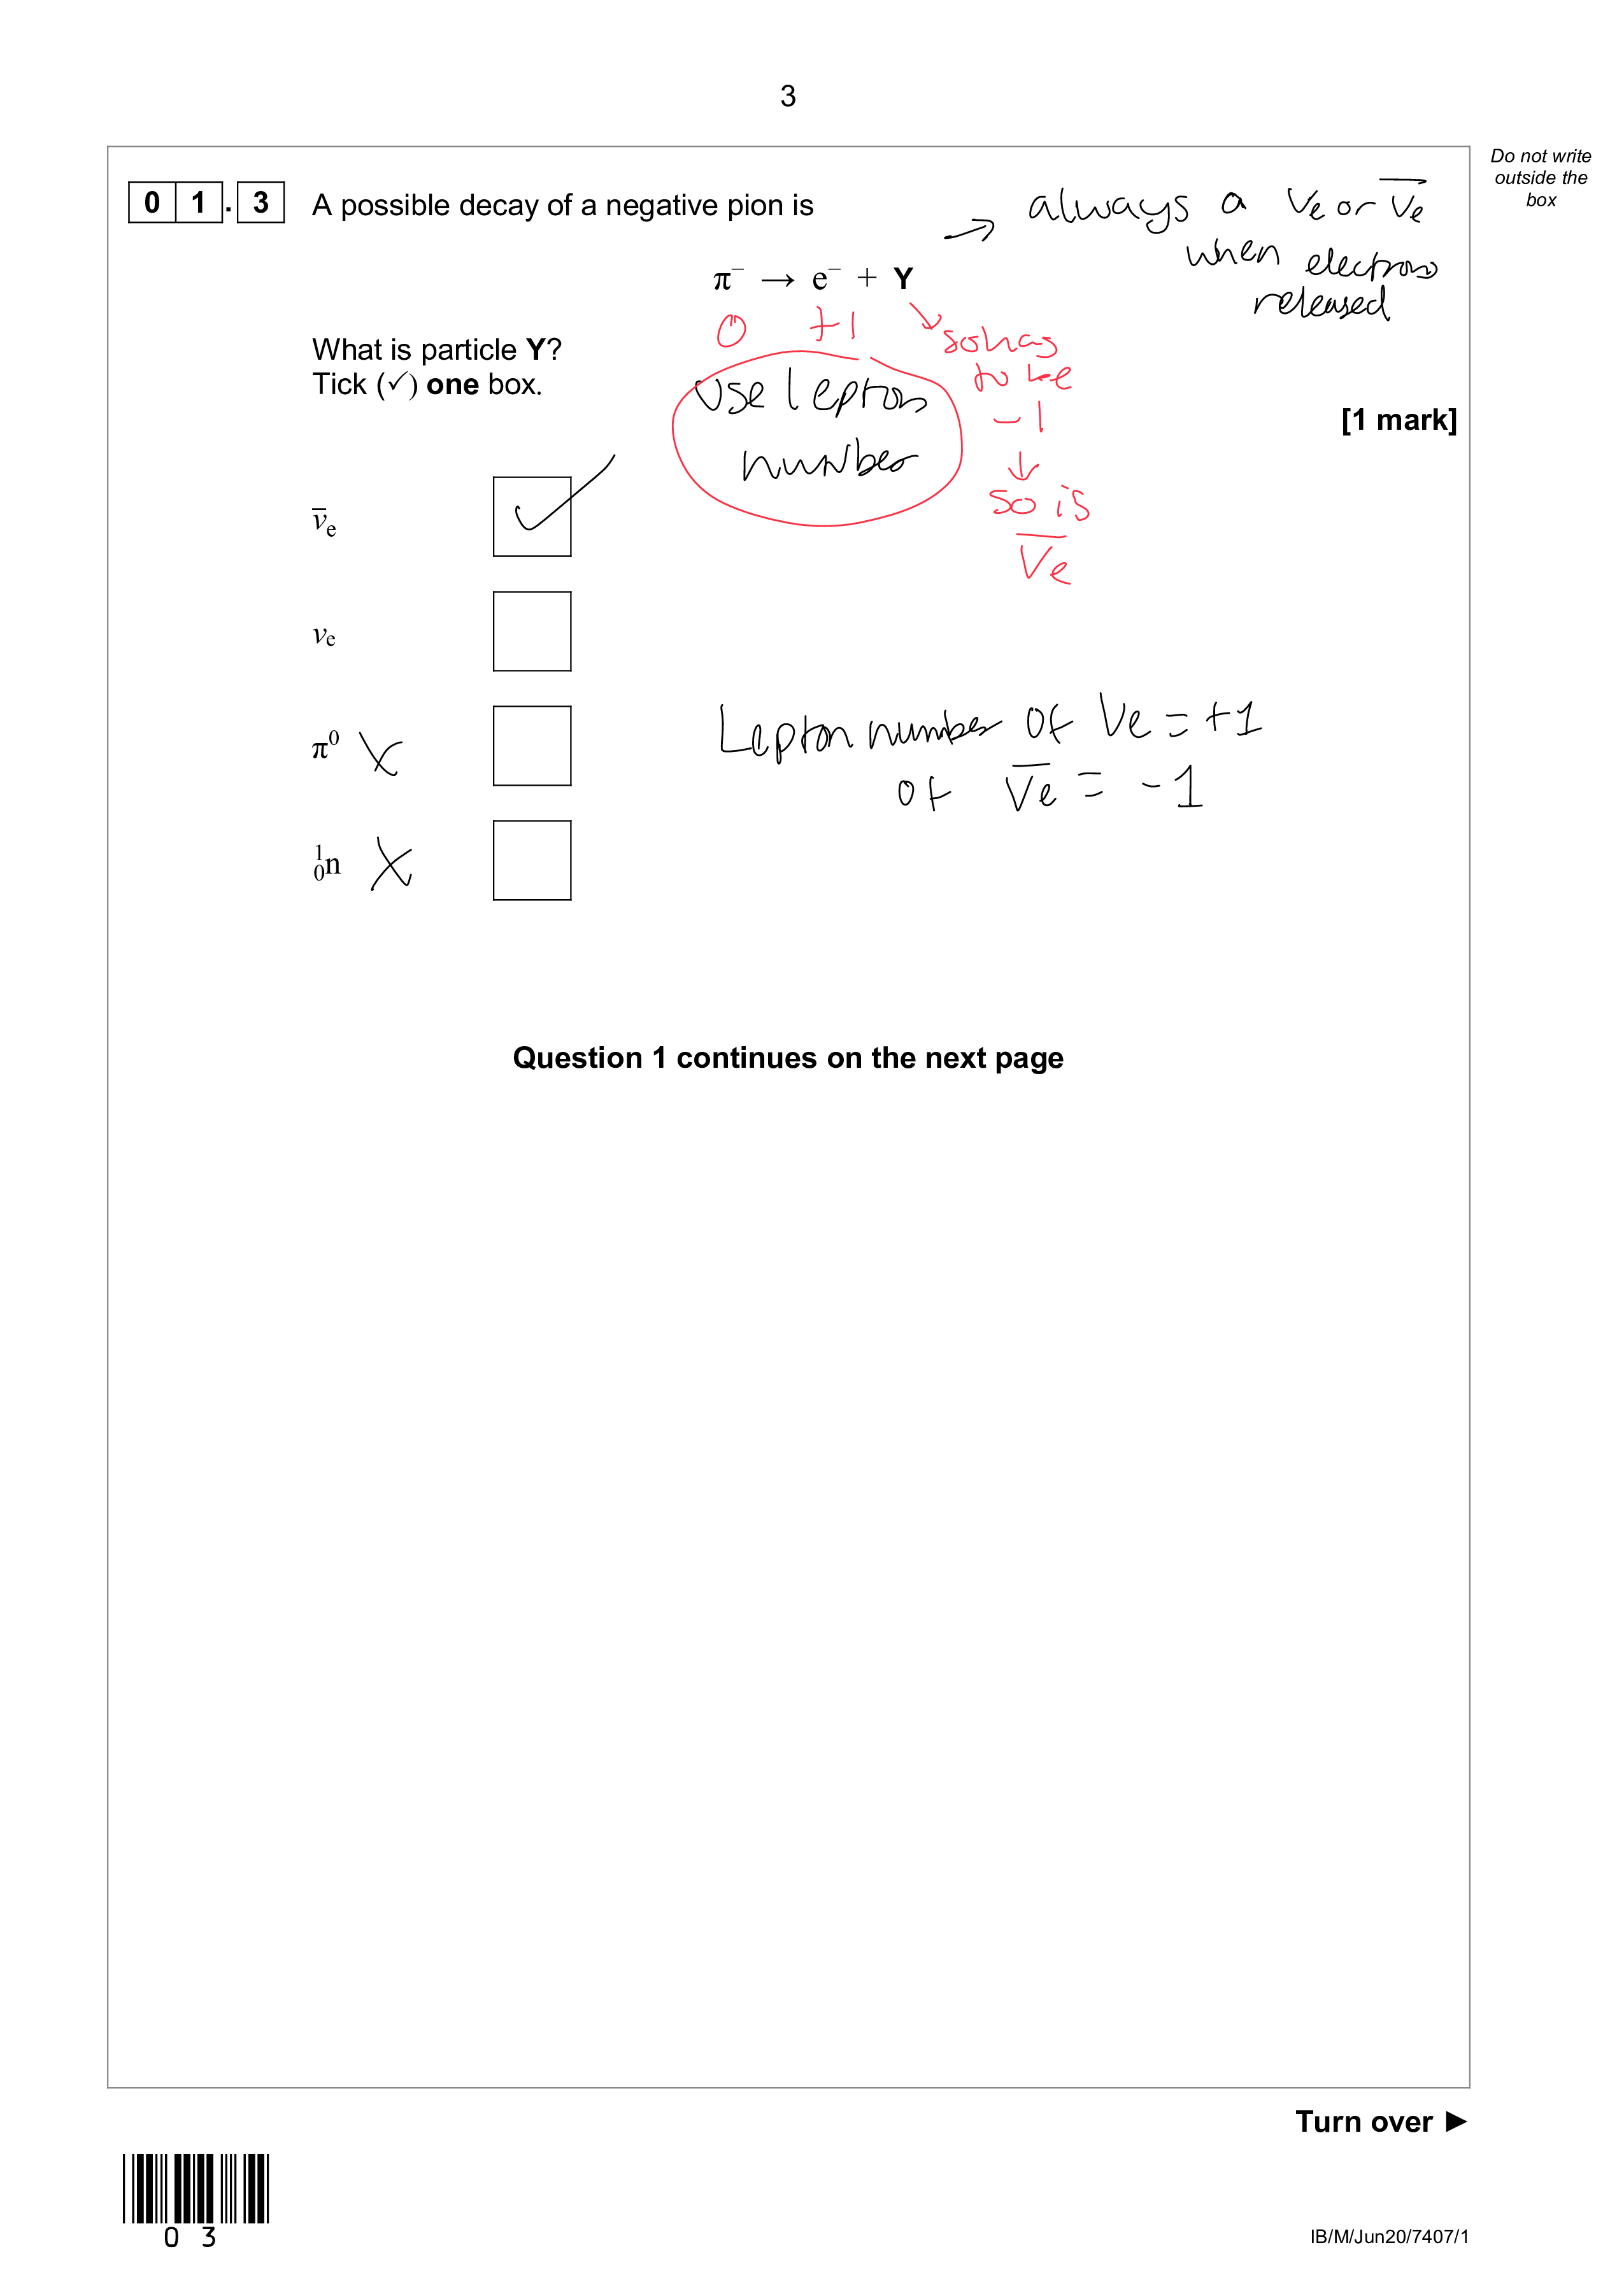 3
Do not write
outside the
box
0 1 . 3 A possible decay of a negative pion is
→ always a νe or ν̅e
when electrons
released
π⁻ → e⁻ + Y
0 +1
so has
to be
-1
↓
so is
ν̅e
What is particle Y?
Tick (✓) one box.
use lepton
number
[1 mark]
ν̅e ✓
νe
π⁰ X
¹₀n X
Lepton number of νe = +1
of ν̅e = -1
Question 1 continues on the next page
Turn over ►
0 3
IB/M/Jun20/7407/1